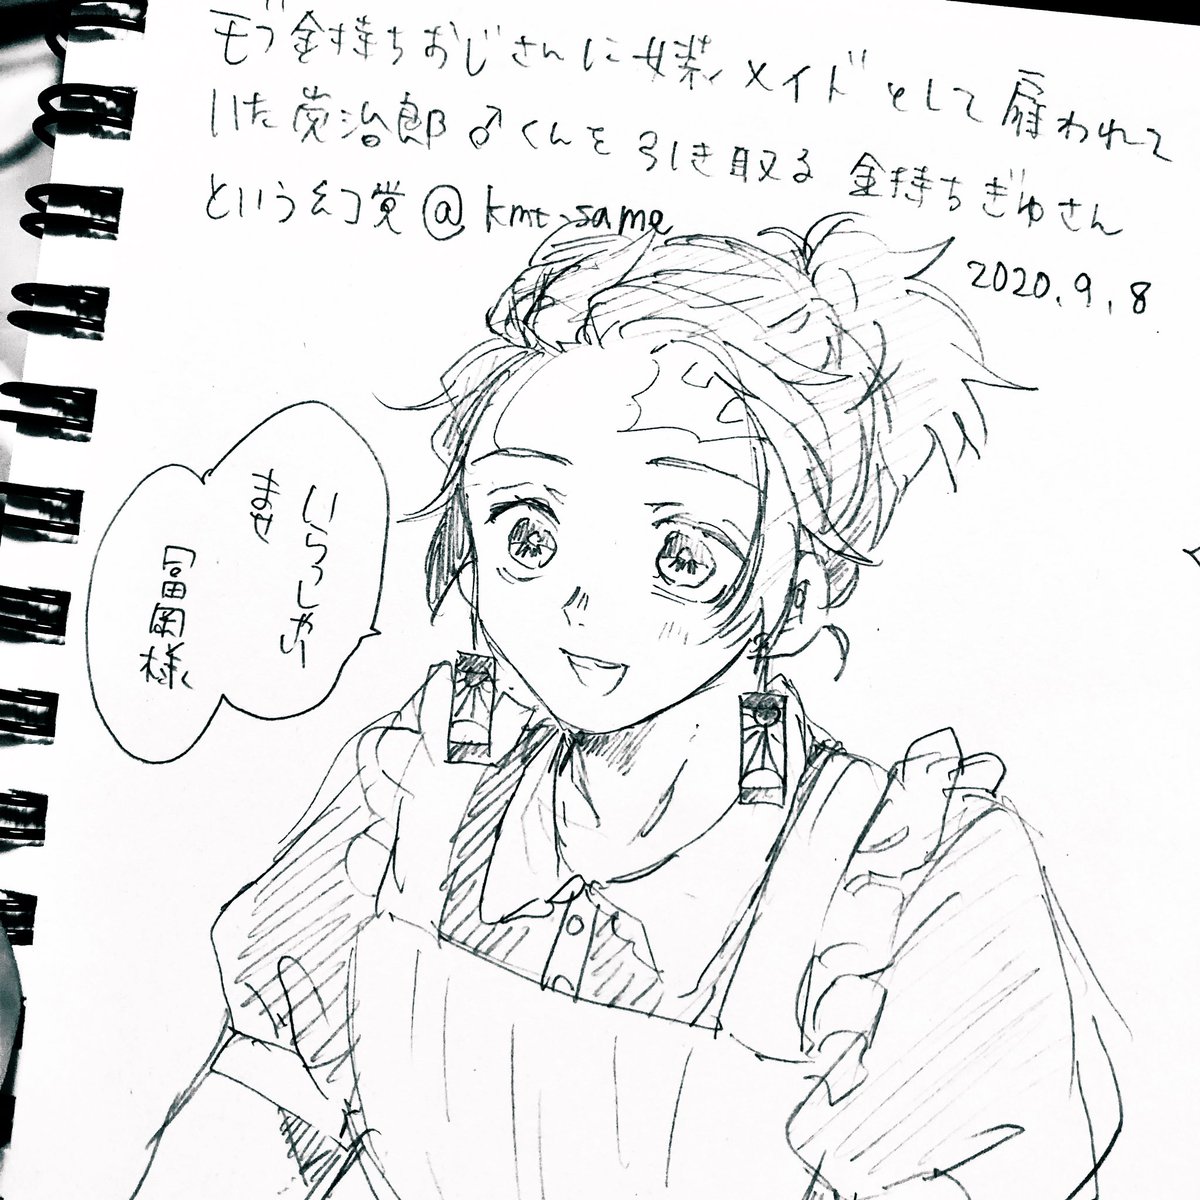 モブ金持ちおじさんに女装メイドとして雇われて
いた炭治郎♂くんを引き取る金持ちぎゆさん
という幻覚@kmt_same
2020.9.8
いらっしゃい
ませ
冨岡様